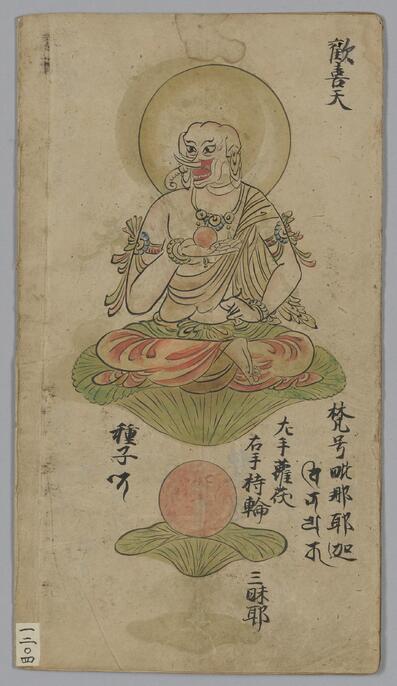 歡喜天
梵号毗那耶迦
左手蘿茯
右手持輪
三昧耶
種子
一二〇四